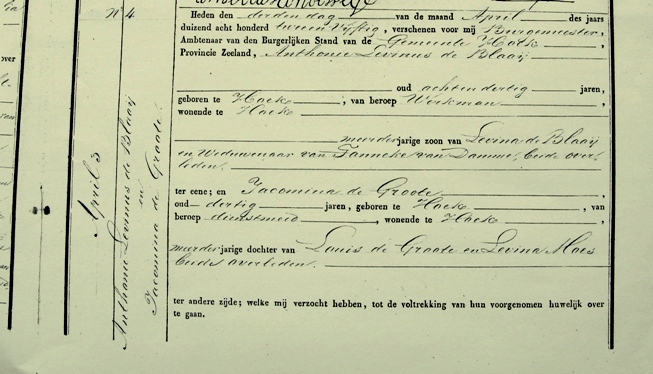 Nº 4
April 3
Anthonie Levinus de Blaaij
en
Jacomina de Groote.
Heden den derden dag van de maand April des jaars
duizend acht honderd twee en vijftig, verschenen voor mij Burgemeester,
Ambtenaar van den Burgerlijken Stand van de Gemeente Hoek,
Provincie Zeeland, Anthonie Levinus de Blaaij
oud acht en dertig jaren,
geboren te Hoek, van beroep Werkman,
wonende te Hoek
meerderjarige zoon van Levina de Blaaij
en Weduwenaar van Janneke van Damme, beide over-
leden.
ter eene; en Jacomina de Groote
oud dertig jaren, geboren te Hoek, van
beroep dienstmeid, wonende te Hoek
meerderjarige dochter van Louis de Groote en Levina Maes
beide overleden.
ter andere zijde; welke mij verzocht hebben, tot de voltrekking van hun voorgenomen huwelijk over
te gaan.